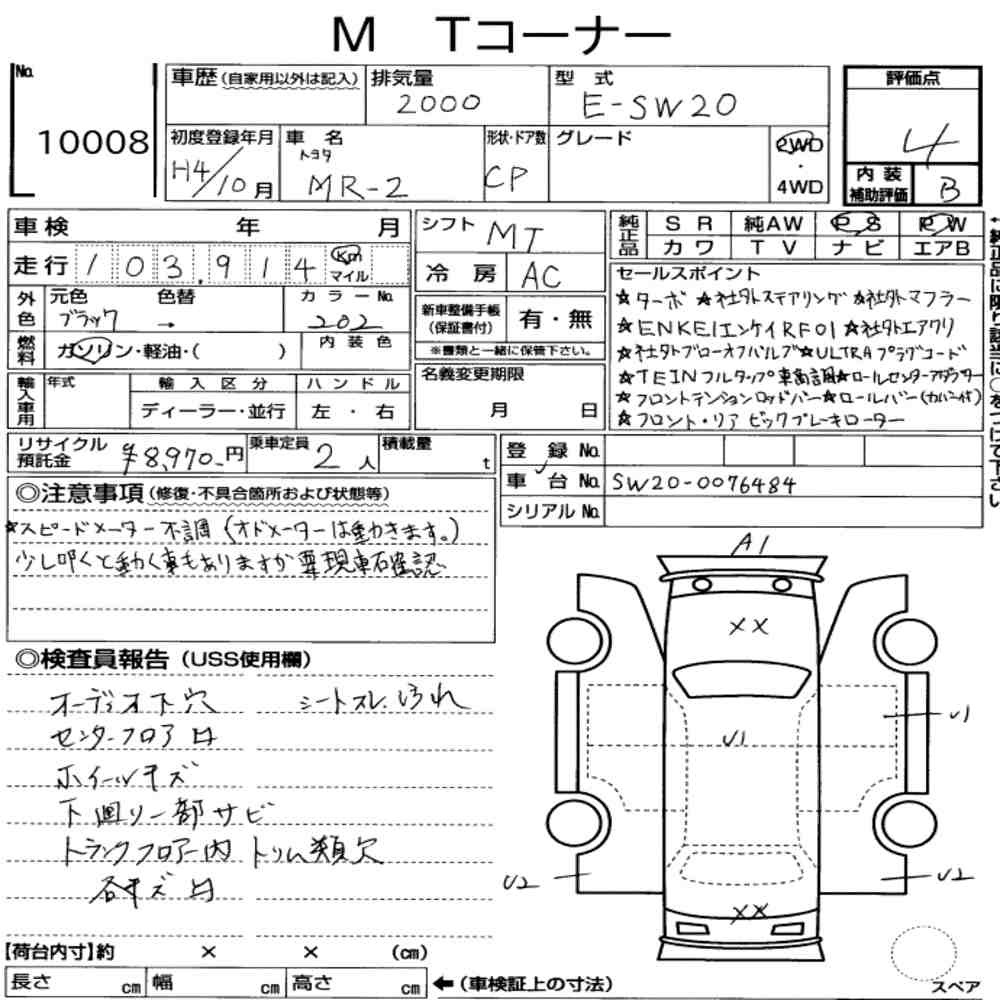 M Tコーナー
No.
10008
車歴 (自家用以外は記入)
排気量
2000
型 式
E-SW20
評価点
4
初度登録年月
H4/10月
車 名
トヨタ
MR-2
形状・ドア数
CP
グレード
2WD
・
4WD
内 装
補助評価
B
車検 年 月
走行 103,914 Km マイル
シフト
MT
冷 房
AC
純正品
SR 純AW PS PW
カワ TV ナビ エアB
外色
元色 色替
ブラック →
カラーNo.
202
燃料
ガソリン・軽油・( )
内 装 色
新車整備手帳
(保証書付)
有・無
※書類と一緒に保管下さい。
輸入車用
年式
輸 入 区 分
ディーラー・並行
ハ ン ド ル
左 ・ 右
名義変更期限
月 日
セールスポイント
☆ターボ ☆社外ステアリング ☆社外マフラー
☆ENKEIエンケイRF01 ☆社外エアクリ
☆社外ブローオフバルブ ☆ULTRAプラグコード
☆TEINフルタップ車高調 ☆ロールセンターアダプター
☆フロントテンションロッドバー ☆ロールバー(カバー付)
☆フロント・リア ビックブレーキローター
リサイクル
預託金
¥8,970-円
乗車定員
2人
積載量
t
登 録 No.
車 台 No.
SW20-0076484
シリアルNo.
◎注意事項 (修復・不具合箇所および状態等)
☆スピードメーター不調 (オドメーターは動きます。)
少し叩くと動く事もありますが 要現車確認
◎検査員報告 (USS使用欄)
オーディオ下穴 シートスレ、汚れ
センターフロア凹
ホイールキズ
下回り一部サビ
トランクフロアー内 トリム類欠
各キズ凹
A1
XX
U1
U1
U2
U2
XX
スペア
【荷台内寸】約 × × (cm)
長さ cm 幅 cm 高さ cm
←(車検証上の寸法)